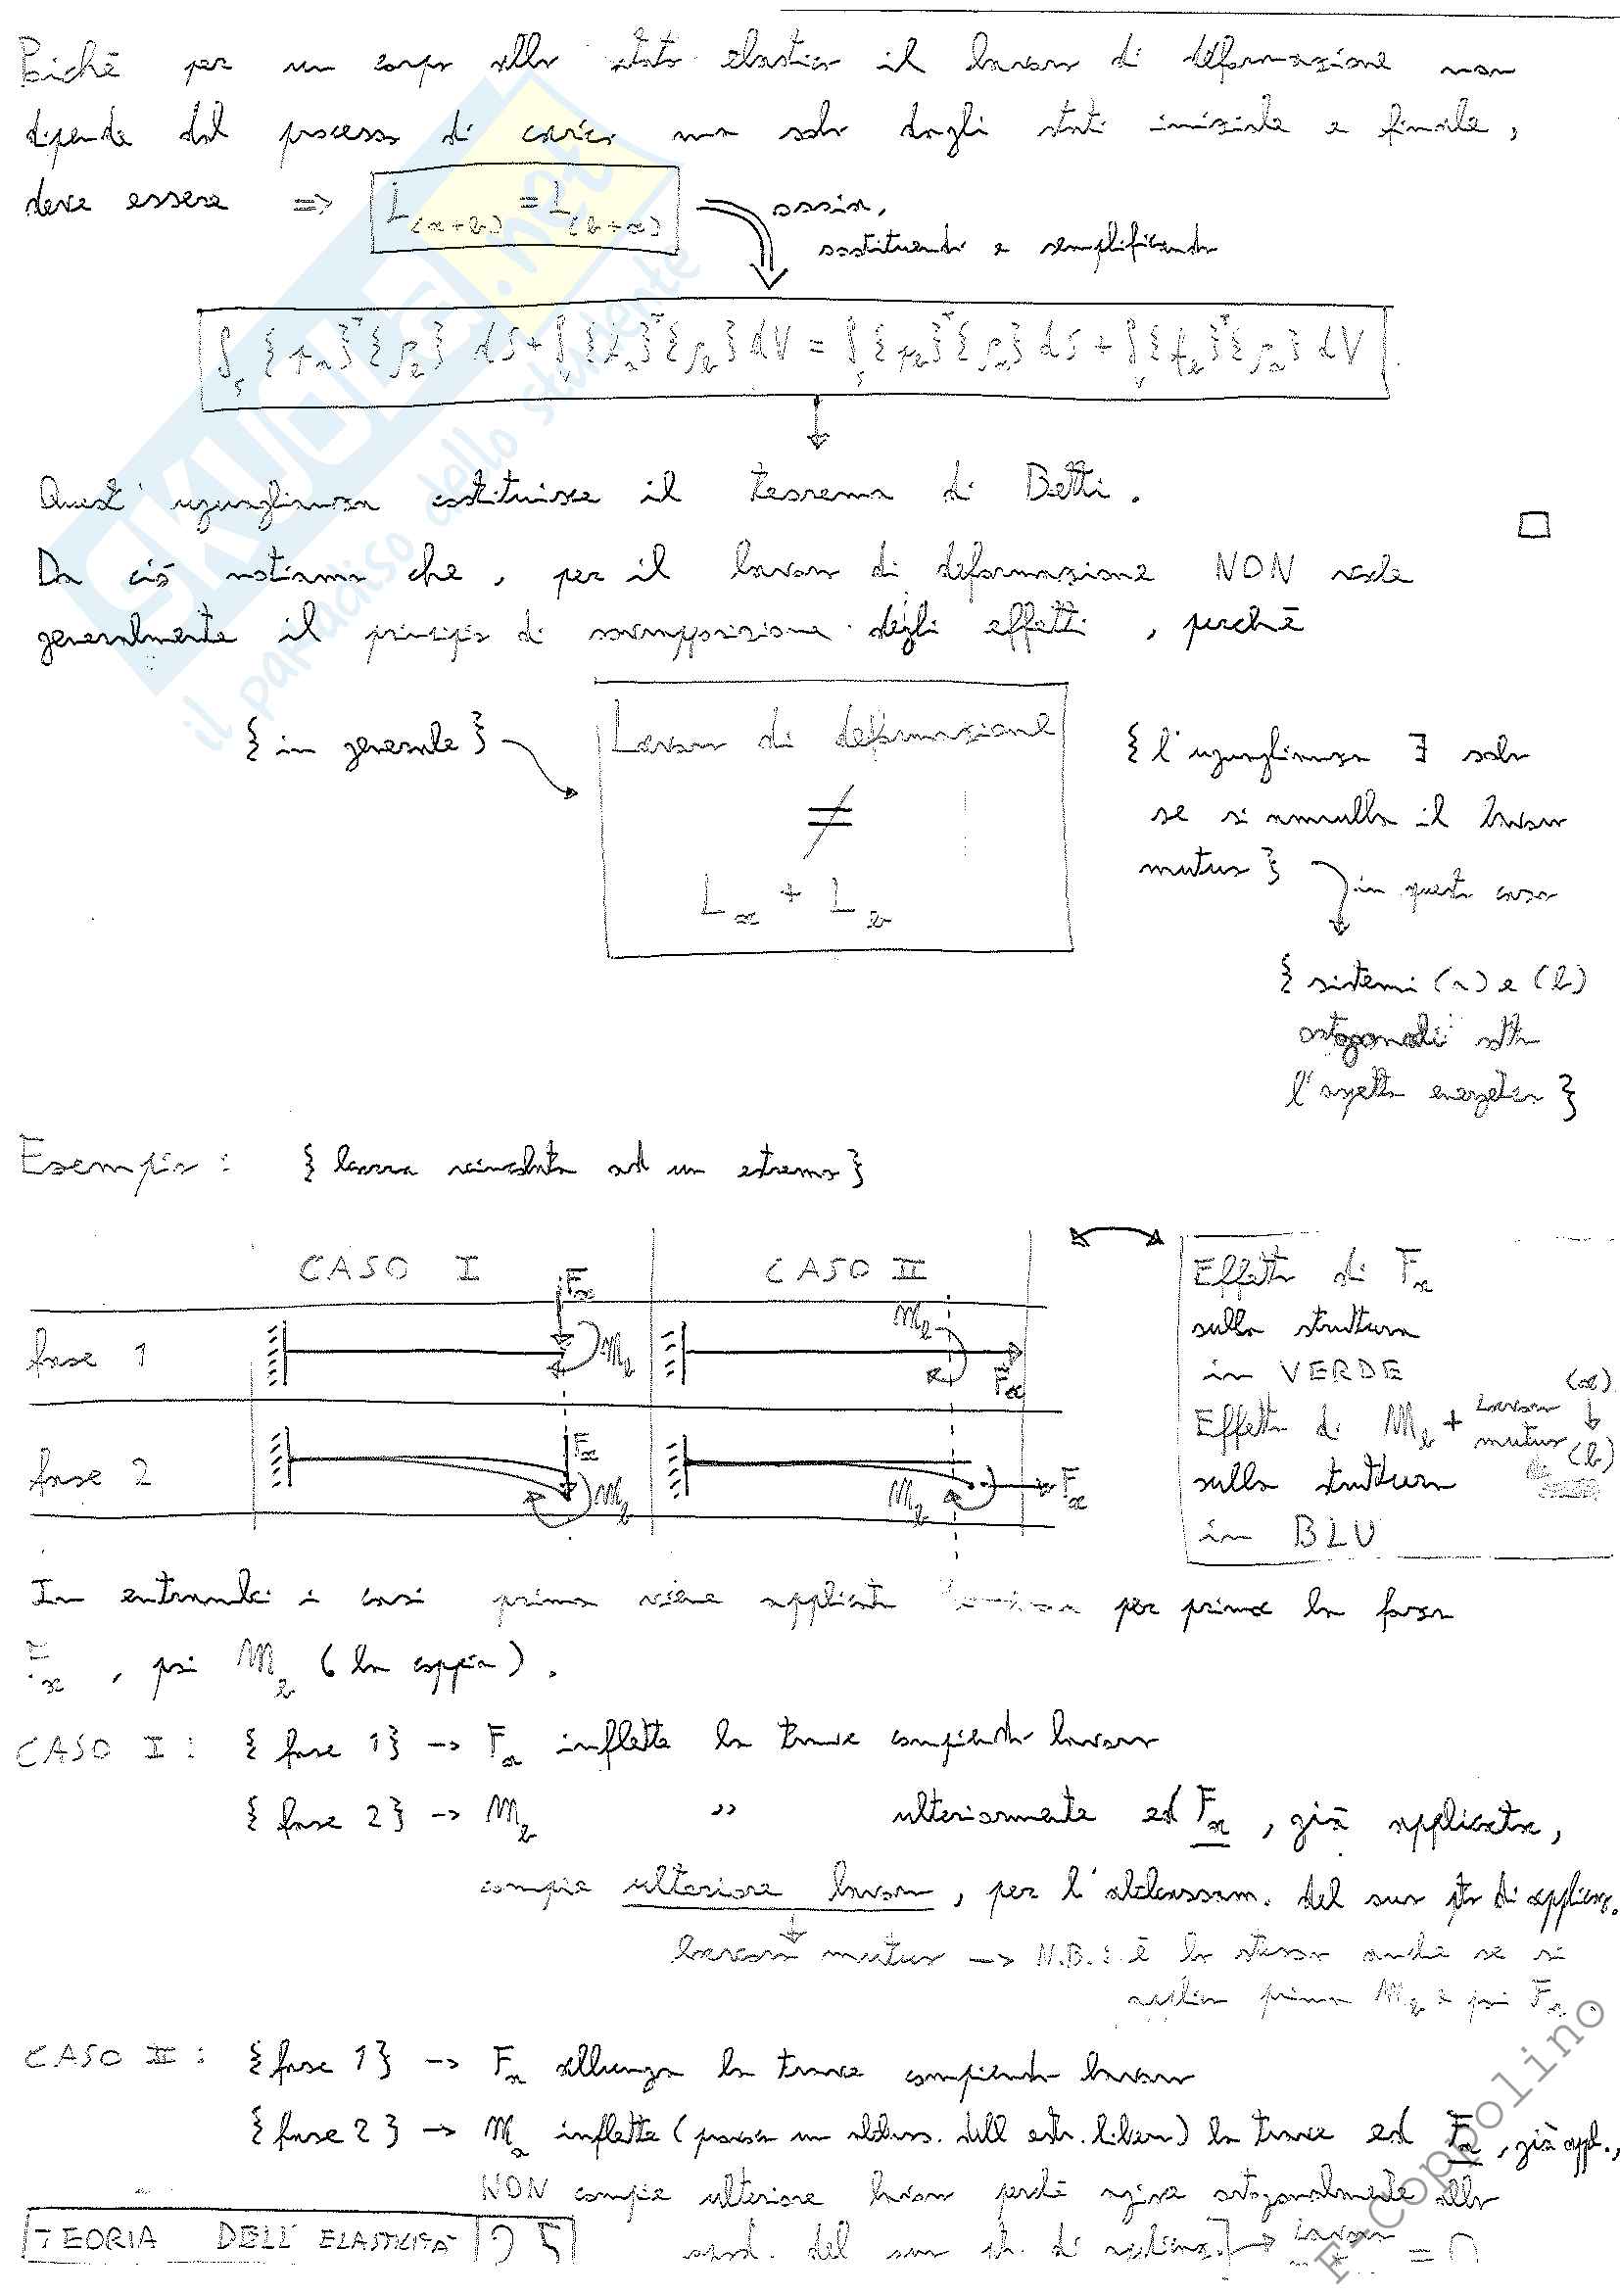 Poichè per un corpo allo stato elastico il lavoro di deformazione non
dipende dal processo di carico ma solo dagli stati iniziale e finale,
deve essere => L(a+b) = L(b+a) ossia,
sostituendo e semplificando
∫s {pa}^T {sb} dS + ∫v {fa}^T {sb} dV = ∫s {pb}^T {sa} dS + ∫v {fb}^T {sa} dV
Quest' uguaglianza costituisce il teorema di Betti.
Da ciò notiamo che, per il lavoro di deformazione NON vale
generalmente il principio di sovrapposizione degli effetti, perchè
{in generale} Lavoro di deformazione
≠
La + Lb
{l'uguaglianza ∃ solo
se si annulla il lavoro
mutuo} in questo caso
{sistemi (a) e (b)
ortogonali sotto
l'aspetto energetico}
Esempio: {trave vincolata ad un estremo}
CASO I CASO II
fase 1 Fa Mb Mb Fa
fase 2 Fa Mb Mb Fa
Effetto di Fa
sulla struttura
in VERDE
Effetto di Mb + Lavoro mutuo (a) (b)
sulla struttura
in BLU
In entrambi i casi prima viene applicata per prima la forza
Fa, poi Mb (la coppia).
CASO I: {fase 1} -> Fa inflette la trave compiendo lavoro
{fase 2} -> Mb " ulteriormente ed Fa, già applicata,
compie ulteriore lavoro, per l'abbassam. del suo pto di applicaz.
lavoro mutuo -> N.B.: è lo stesso anche se si
applica prima Mb e poi Fa
CASO II: {fase 1} -> Fa allunga la trave compiendo lavoro
{fase 2} -> Ma inflette (provoca un abbass. dell' estr. libero) la trave ed Fa, già appl.,
NON compie ulteriore lavoro perchè agisce ortogonalmente allo
spost. del suo pt. di applicaz. -> Lavoro = 0
TEORIA DELL' ELASTICITÀ 25
SKUOLA.net
il paradiso dello studente
F-Coppolino